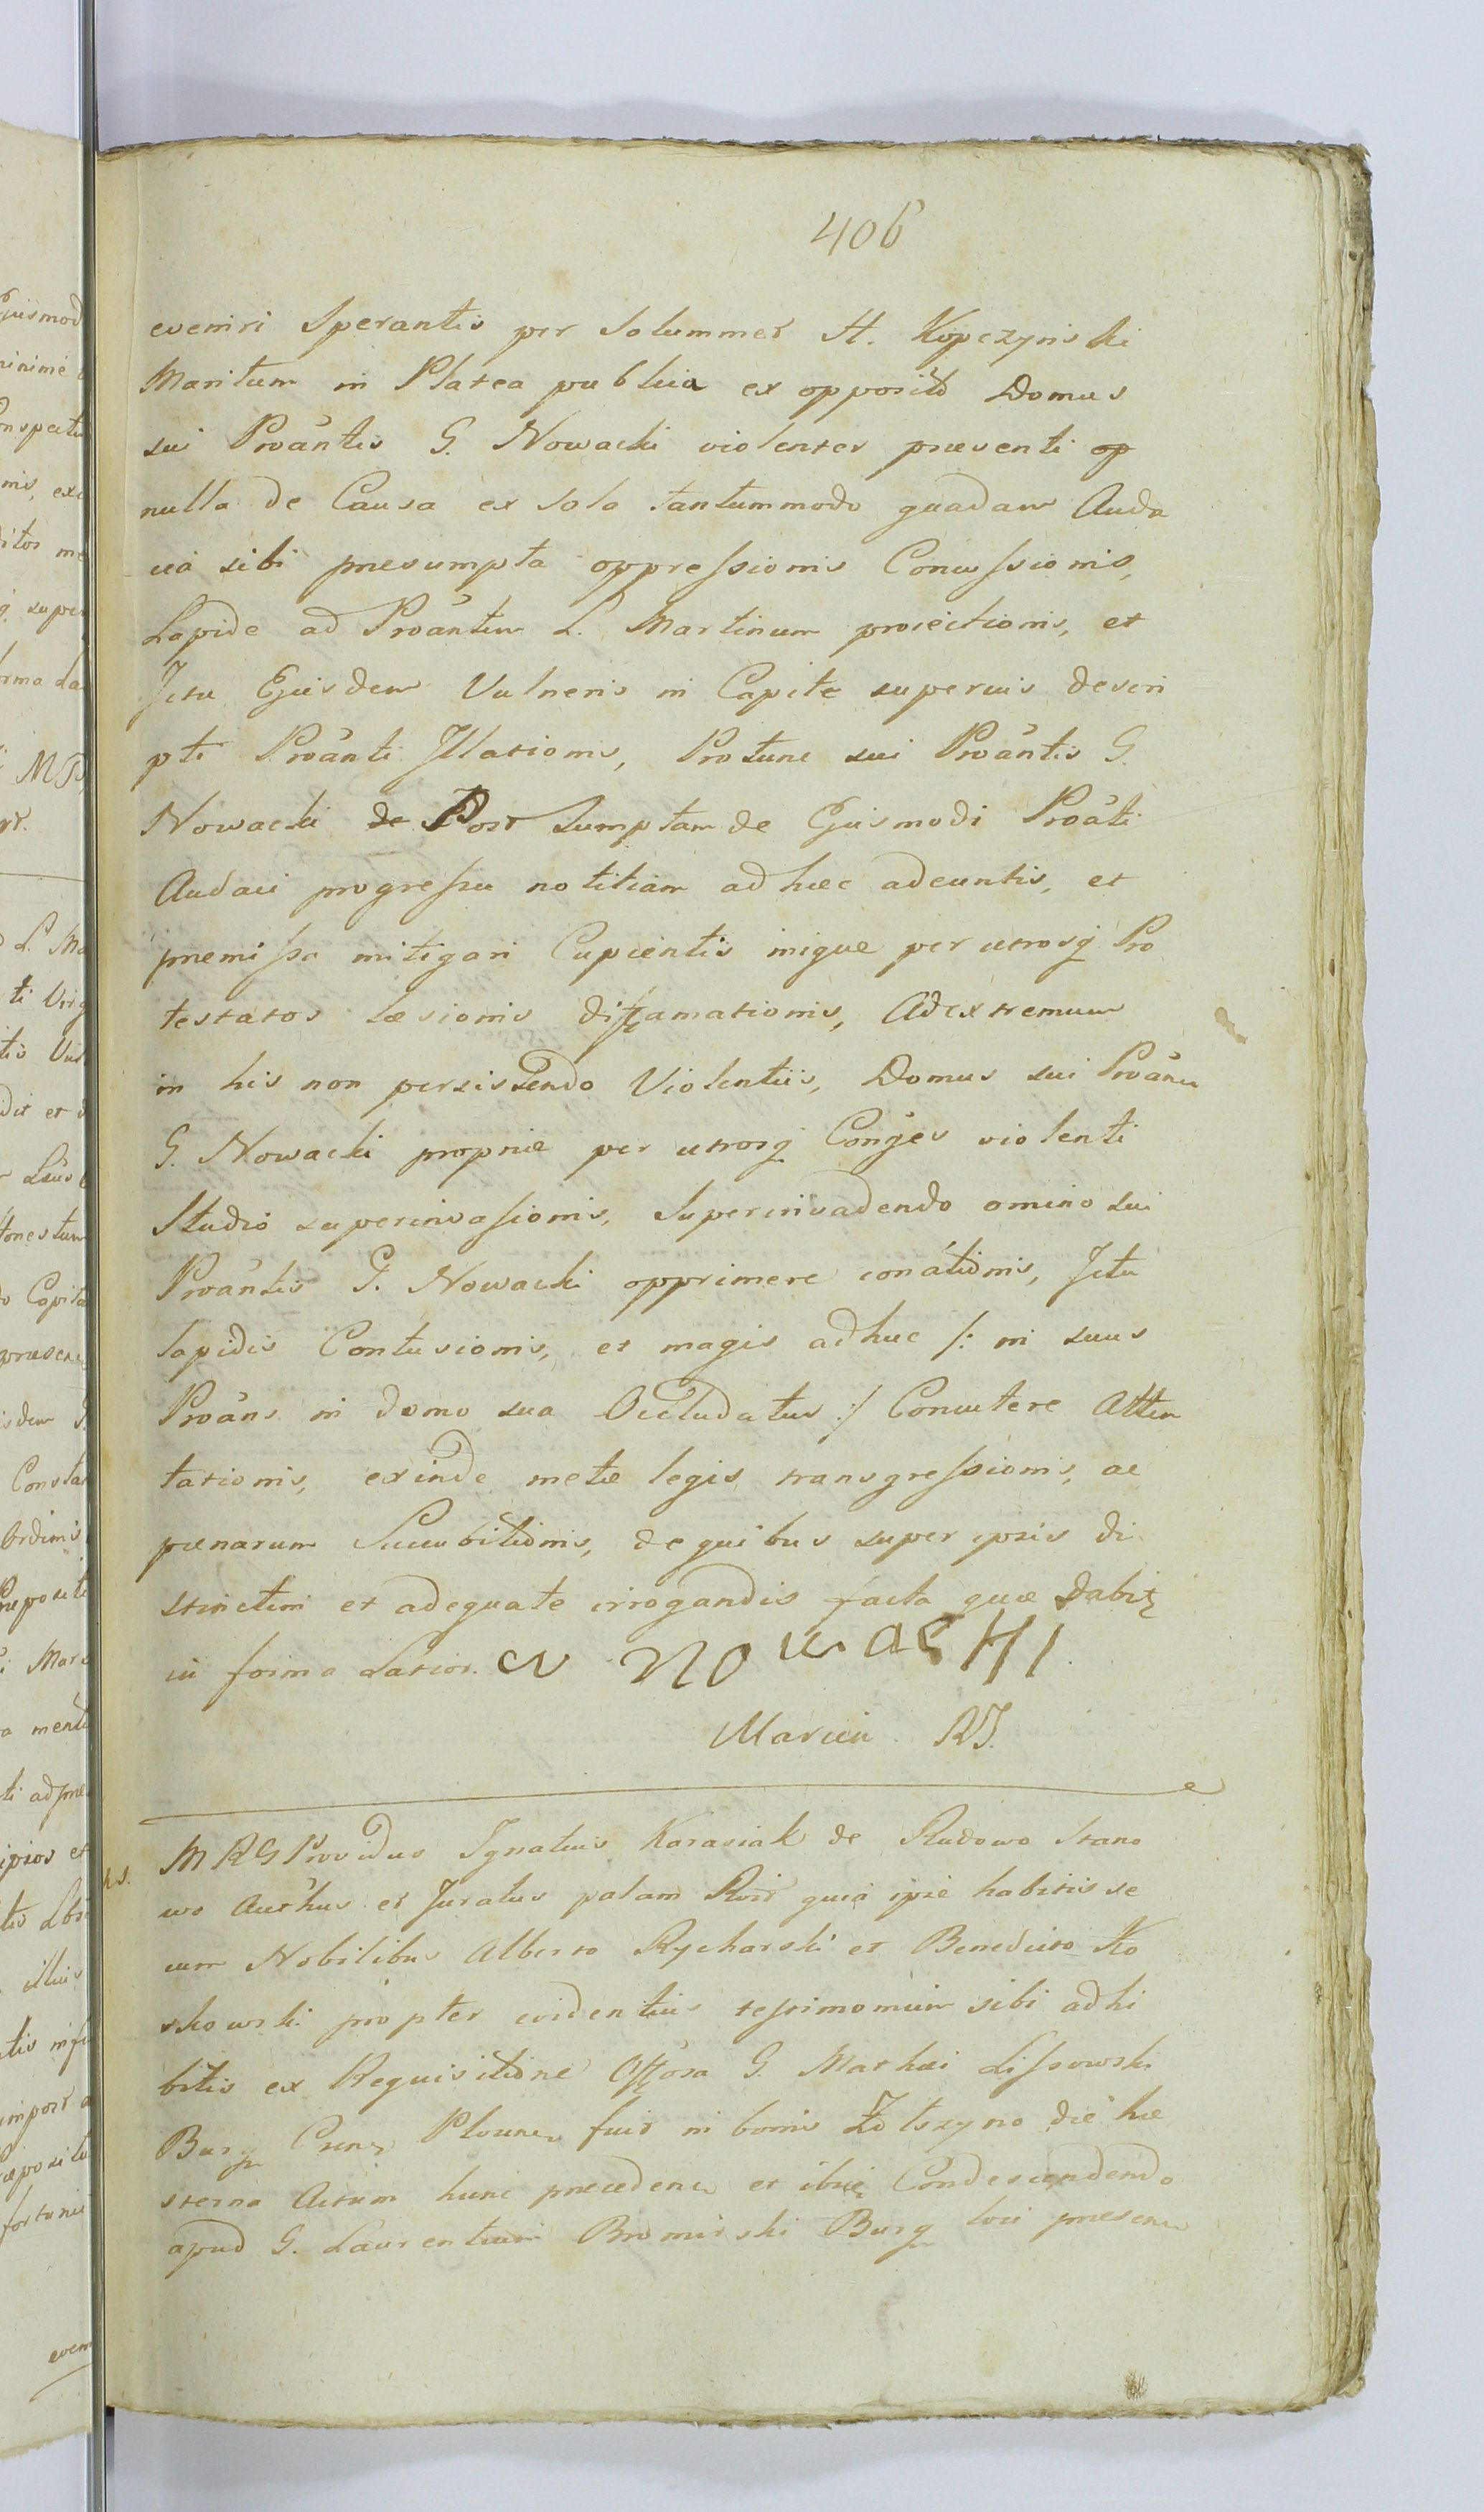 406
eveniri Sperantis per Solummet H. Kopczynski
Maritum in Platea publica ex opposito Domus
sui Proântis G. Nowacki violenter præventi op
nulla de Causa ex solo tantummodo quadam Auda
cia sibi præsumpta oppressionis Concussionis,
Lapide ad Proântem L. Martinum proiectionis, et
Jctu Ejusdem Vulneris in Capite superius descri
pti Proânti Jllationis, Protunc sui Proântis G.
Nowacki de Post Sumptam de Ejusmodi Proâti
Audaci progressu notitiam ad hæc adeuntis, et
præmissa mitigari Cupientis inique per utrosq Pro
testatos læsionis diffamationis, Adextremum
in his non persistendo Violentiis, Domus sui Proân
G. Nowacki propriæ per utrosq Conges violenti
Studio superinvasionis, Superinvadendo omino sui
Proântis G. Nowacki opprimere conationis, Jctu
lapidis Contusionis, et magis adhuc /: ni suus
Proâns in domo sua Occludatus :/ Concutere Atten
tationis, exinde metæ legis transgressionis, ac
pœnarum Succubitionis, de quibus super ipsis di
stinctim et adequate irrogandis facta quæ Dabit
in forma Latior. NOWACKI.
Marcin RJ.
MRG Providus Ignatius Karasiak de Rudowo Stano
wo Authus et Juratus palam Rôit quia ipse habitis se
cum Nobilibus Alberto Rycharski et Benedicto Ko
skowski propter evidentius testimonium sibi adhi
bitis ex Requisitione Offosa G. Mathæi Lissowski
Burg Cren Plocnen fuit in bonis die he
sterna Actum hunc præceden et ibiq Condescendendo
apud G. Laurentium Bromirski Burg loci præsen